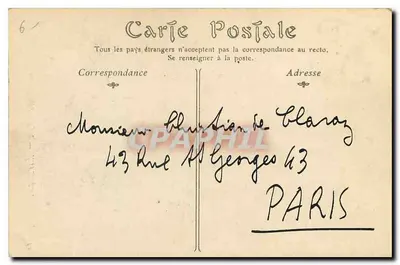 6
Carte Postale
Tous les pays étrangers n'acceptent pas la correspondance au recto.
Se renseigner à la poste.
Correspondance
Adresse
Monsieur Christian de Claroz
CPAPHIL
43 Rue St Georges 43
PARIS